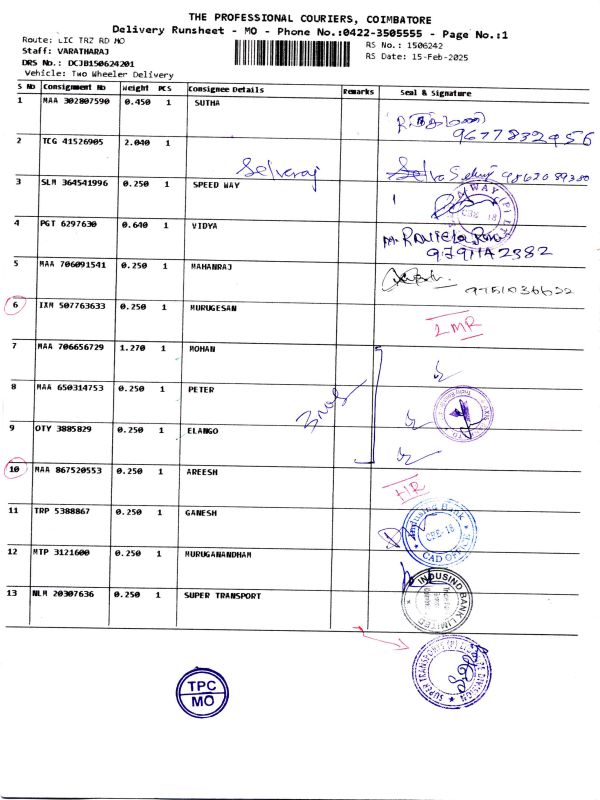 THE PROFESSIONAL COURIERS, COIMBATORE
Delivery Runsheet - MO - Phone No.:0422-3505555 - Page No.:1
Route: LIC TRZ RD MO
RS No.: 1506242
Staff: VARATHARAJ
RS Date: 15-Feb-2025
DRS No.: DCJB150624201
Vehicle: Two Wheeler Delivery
S No Consignment No Weight PCS Consignee Details Remarks Seal & Signature
1 MAA 302807590 0.450 1 SUTHA
9677832956
2 TCG 41526905 2.040 1
Selvaraj
3 SLM 364541996 0.250 1 SPEED WAY
4 PGT 6297630 0.640 1 VIDYA
9791142382
5 MAA 706091541 0.250 1 MAHANRAJ
9751036622
6 IXM 507763633 0.250 1 MURUGESAN
LMR
7 MAA 706656729 1.270 1 MOHAN
8 MAA 650314753 0.250 1 PETER
3 nos
9 OTY 3885829 0.250 1 ELANGO
10 MAA 867520553 0.250 1 AREESH
HR
11 TRP 5388867 0.250 1 GANESH
Indusind Bank
CAD OFFICE
12 MTP 3121600 0.250 1 MURUGANANDHAM
INDUSIND BANK LIMITED
13 NLM 20307636 0.250 1 SUPER TRANSPORT
SUPER TRANSPORTS (P) LTD
DIVISION
TPC
MO